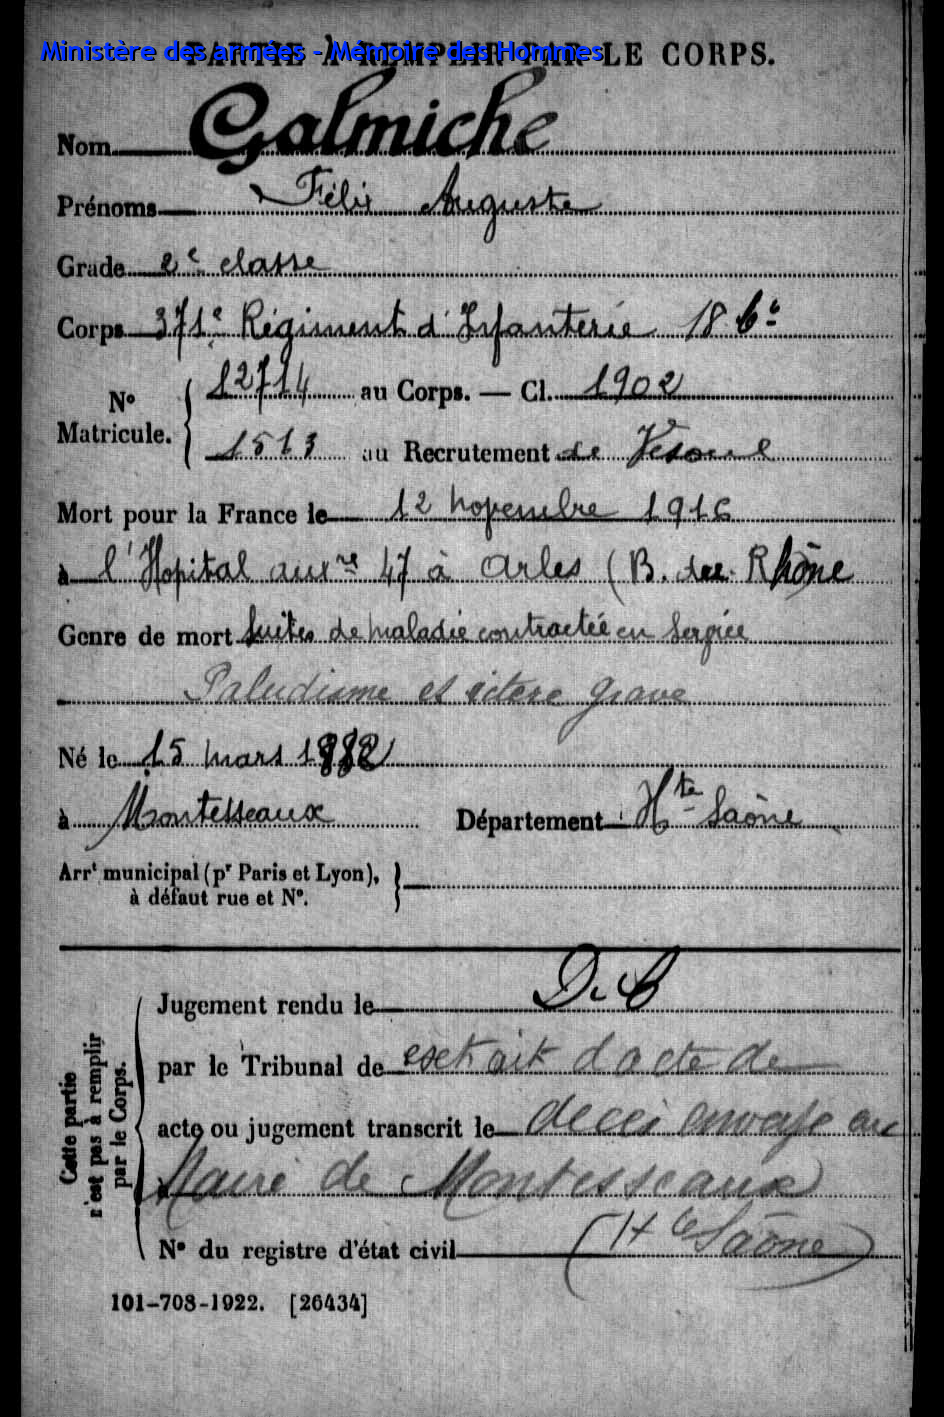 Ministère des armées - Mémoire des Hommes
PARTIE À REMPLIR PAR LE CORPS.
Nom Galmiche
Prénoms Félix Auguste
Grade 2e classe
Corps 371e Régiment d'Infanterie 18 Cie
No Matricule. 12714 au Corps. — Cl. 1902
1513 au Recrutement de Vesoul
Mort pour la France le 12 novembre 1916
à l'Hopital auxre 47 à Arles (B. des Rhône
Genre de mort Suites de maladie contractée en Service
Paludisme et ictere grave
Né le 15 mars 1882
à Montesseaux Département Hte Saône
Arrt municipal (pr Paris et Lyon), à défaut rue et No.
Cette partie n'est pas à remplir par le Corps.
Jugement rendu le
par le Tribunal de extrait d acte de
acte ou jugement transcrit le deces envoye au
à Maire de Montesseaux
No du registre d'état civil (Hte Saône)
101-708-1922. [26434]